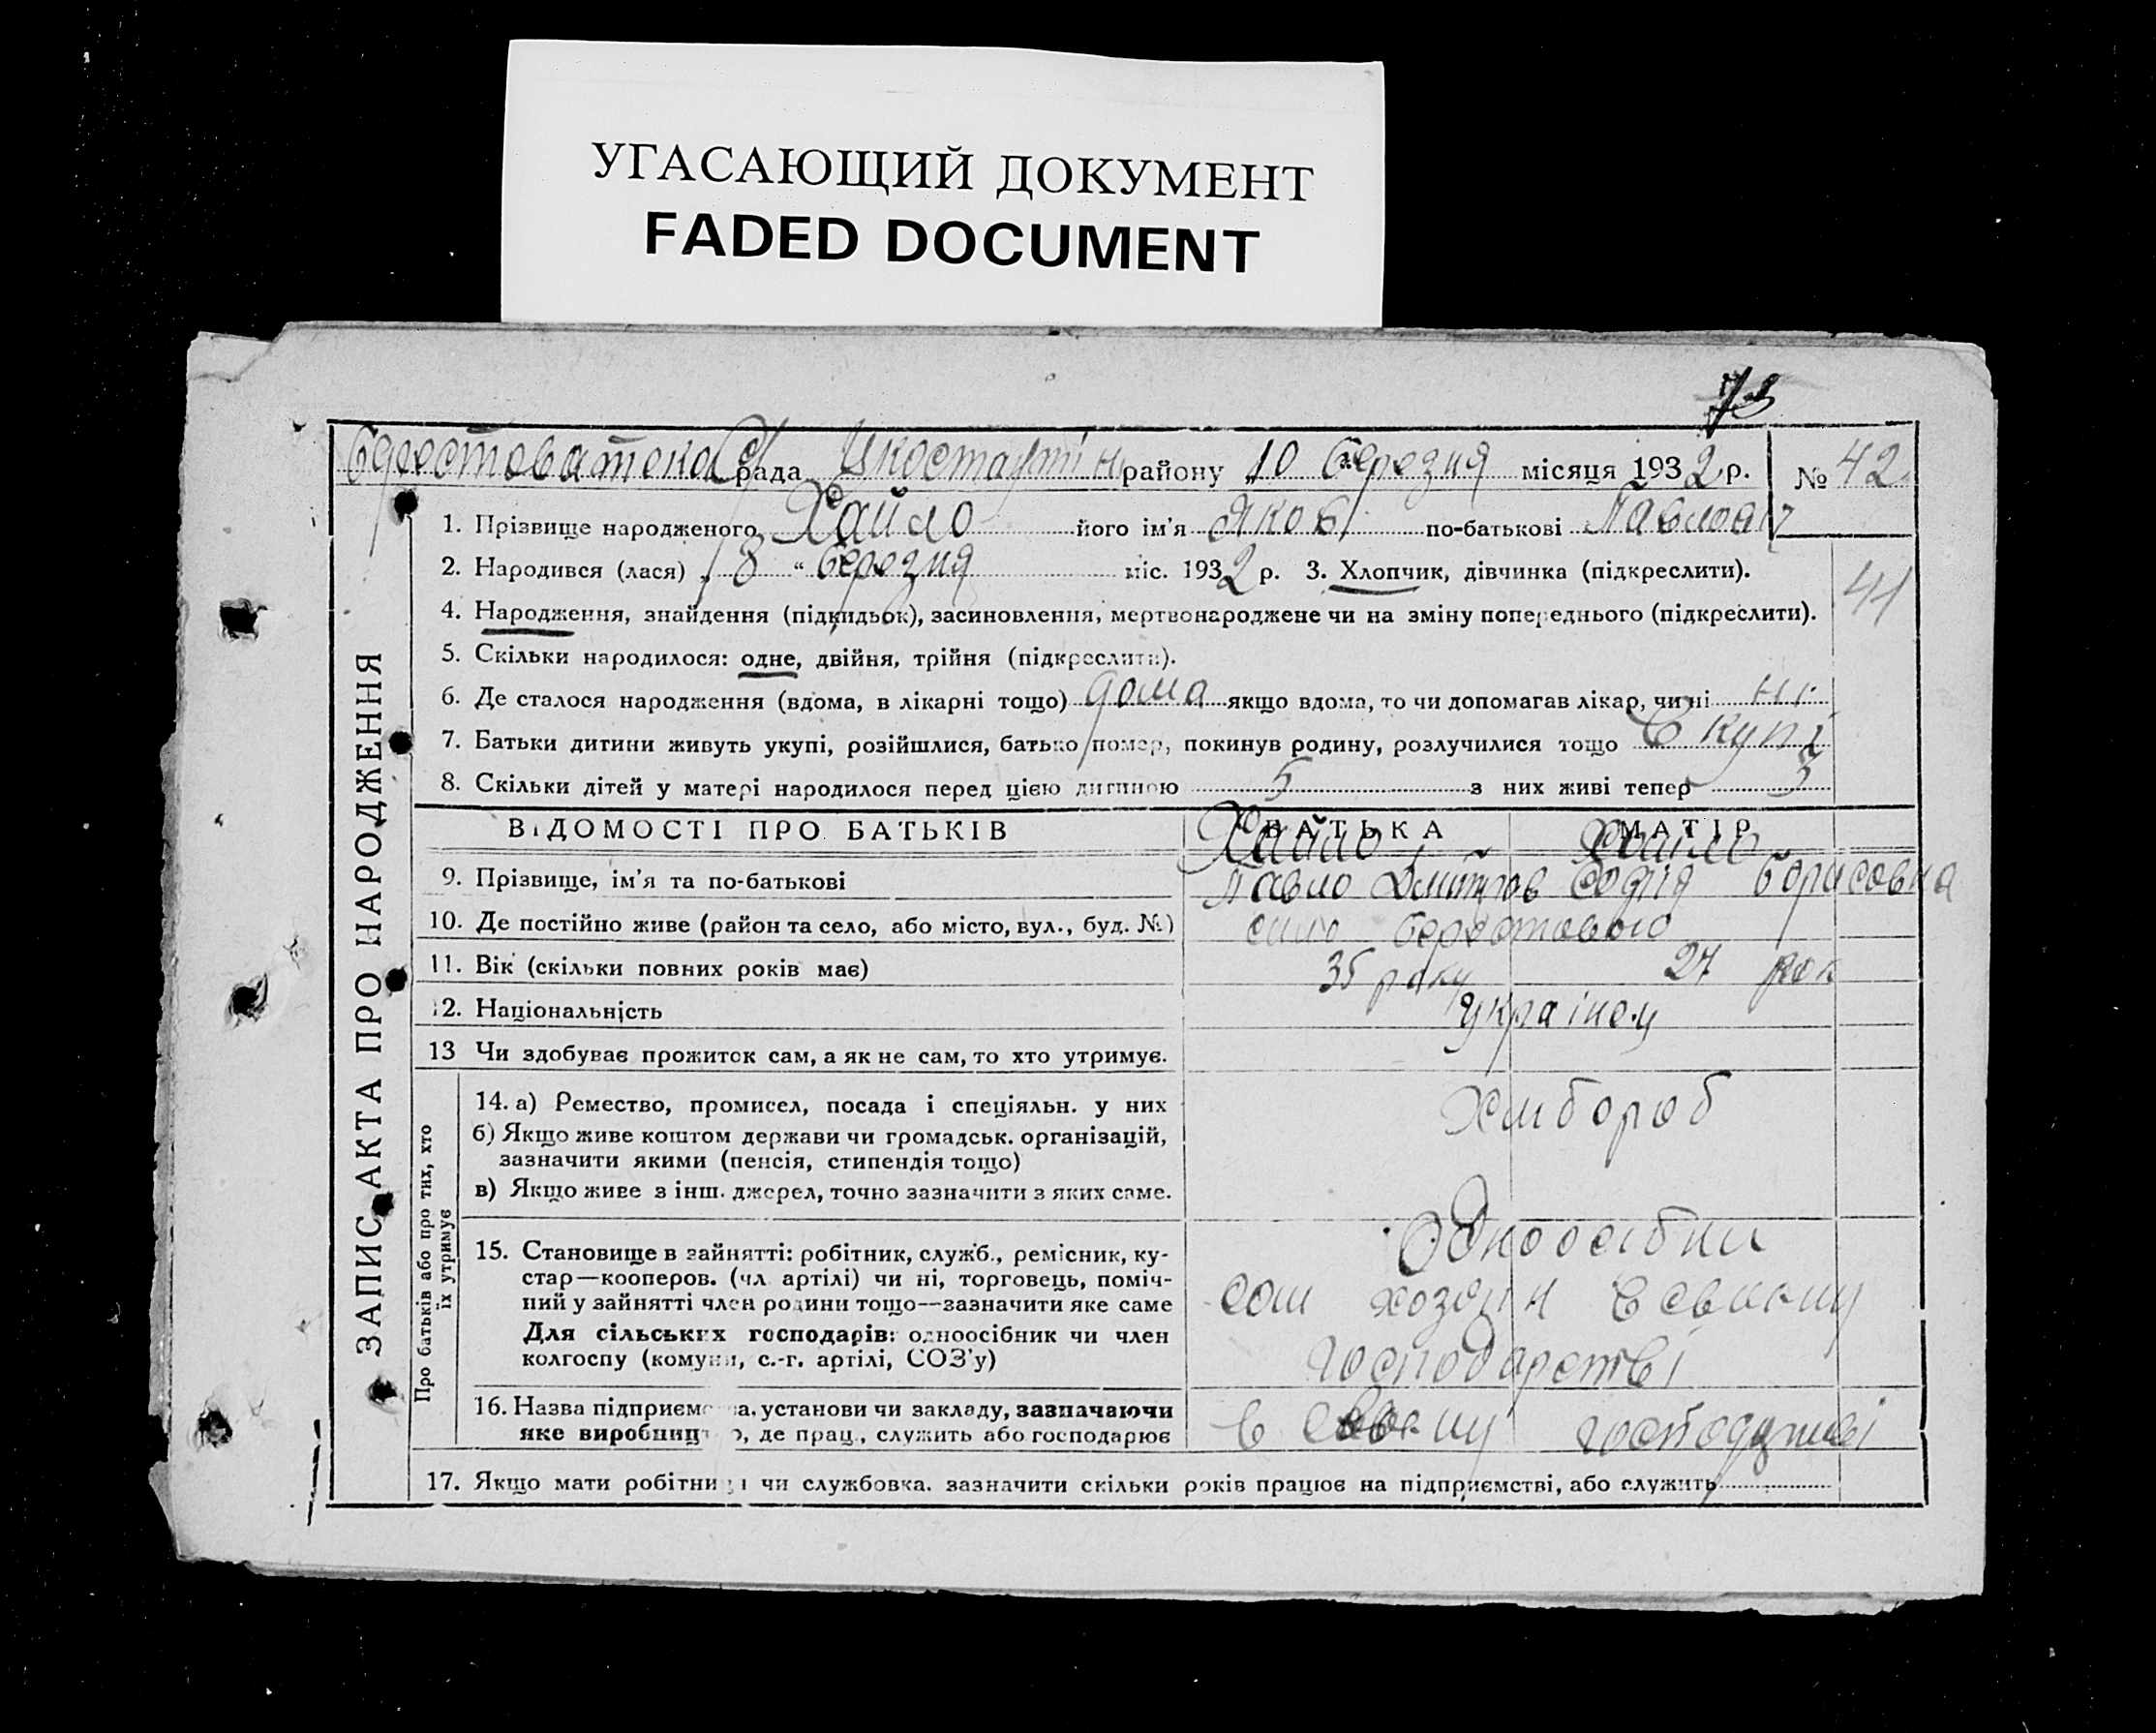 УГАСАЮЩИЙ ДОКУМЕНТ
FADED DOCUMENT
73
рада району 10 березня місяця 1932 р. № 42
1. Прізвище народженого Хайло його ім'я Яков по-батькові Павлов
2. Народився (лася) „ 8 “ березня міс. 1932 р. 3. Хлопчик, дівчинка (підкреслити).
41
4. Народження, знайдення (підкидьок), засиновлення, мертвонароджене чи на зміну попереднього (підкреслити).
5. Скільки народилося: одне, двійня, трійня (підкреслити).
6. Де сталося народження (вдома, в лікарні тощо) дома якщо вдома, то чи допомагав лікар, чи ні ні
7. Батьки дитини живуть укупі, розійшлися, батько помер, покинув родину, розлучилися тощо в купі
8. Скільки дітей у матері народилося перед цією дитиною 5 з них живі тепер 3
ЗАПИС АКТА ПРО НАРОДЖЕННЯ
ВІДОМОСТІ ПРО БАТЬКІВ БАТЬКА МАТІР
Хайло Хайло
9. Прізвище, ім'я та по-батькові Павло Дмитров Софія Борисовна
10. Де постійно живе (район та село, або місто, вул., буд. №) село Берестовою
11. Вік (скільки повних років має) 35 року 27 рок
12. Національність українец
13 Чи здобуває прожиток сам, а як не сам, то хто утримує.
Про батьків або про тих, хто
їх утримує
14. а) Ремество, промисел, посада і спеціяльн. у них Хлибороб
б) Якщо живе коштом держави чи громадськ. організацій,
зазначити якими (пенсія, стипендія тощо)
в) Якщо живе з інш. джерел, точно зазначити з яких саме.
15. Становище в зайнятті: робітник, служб., ремісник, ку- Одноосібни
стар—кооперов. (чл. артілі) чи ні, торговець, поміч- сам хозяин в своему
ний у зайнятті член родини тощо—зазначити яке саме
Для сільських господарів: одноосібник чи член господарстві
колгоспу (комуни, с.-г. артілі, СОЗ'у)
16. Назва підприємства, установи чи закладу, зазначаючи
яке виробництво, де прац., служить або господарює в своему
17. Якщо мати робітниця чи службовка, зазначити скільки років працює на підприємстві, або служить